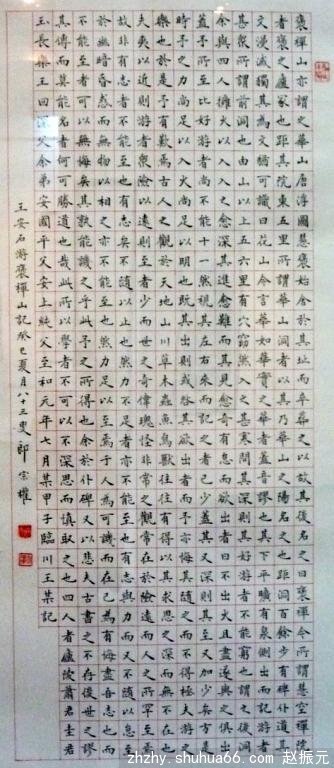 褒禪山亦謂之華山唐浮圖慧褒始舍於其址而卒葬之以故其後名之曰褒禪今所謂慧空禪院
者褒之廬冢也距其院東五里所謂華山洞者以其乃華山之陽名之也距洞百餘步有碑仆道其
文漫滅獨其為文猶可識曰花山今言華如華實之華者蓋音謬也其下平曠有泉側出而記游者
甚眾所謂前洞也由山以上五六里有穴窈然入之甚寒問其深則其好游者不能窮也謂之後洞
余與四人擁火以入入之愈深其進愈難而其見愈奇有怠而欲出者曰不出火且盡遂與之俱出
蓋予所至比好游者尚不能十一然視其左右來而記之者已少蓋其又深則其至又加少矣方是
時予之力尚足以入火尚足以明也既其出則或咎其欲出者而予亦悔其隨之而不得極夫游之
樂也於是予有歎焉古人之觀於天地山川草木蟲魚鳥獸往往有得以其求思之深而無不在也
夫夷以近則游者眾險以遠則至者少而世之奇偉瑰怪非常之觀常在於險遠而人之所罕至焉
故非有志者不能至也有志矣不隨以止也然力不足者亦不能至也有志與力而又不隨以怠至
於幽暗昏惑而無物以相之亦不能至也然力足以至焉於人為可譏而在己為有悔盡吾志也而
不能至者可以無悔矣其孰能譏之乎此予之所得也余於仆碑又以悲夫古書之不存後世之謬
其傳而莫能名者何可勝道也哉此所以學者不可以不深思而慎取之也四人者廬陵蕭君圭君
玉長樂王回深父余弟安國平父安上純父至和元年七月某甲子臨川王某記
王安石游褒禪山記癸巳夏月八十三叟郎宗權
zhzhy.shuhua66.com 赵振元